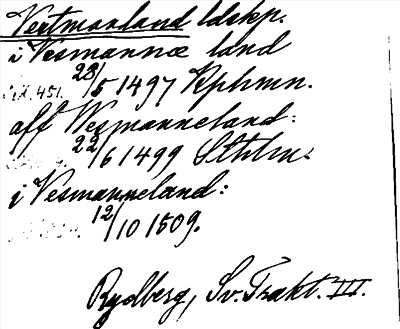 Vestmanland ldskp.
i Vesmannæ land
28/5 1497 Kphmn.
aff Vesmanneland:
22/6 1499 Sthlm.
i Vesmanneland:
12/10 1509.
Rydberg, Sv. Trakt. III.